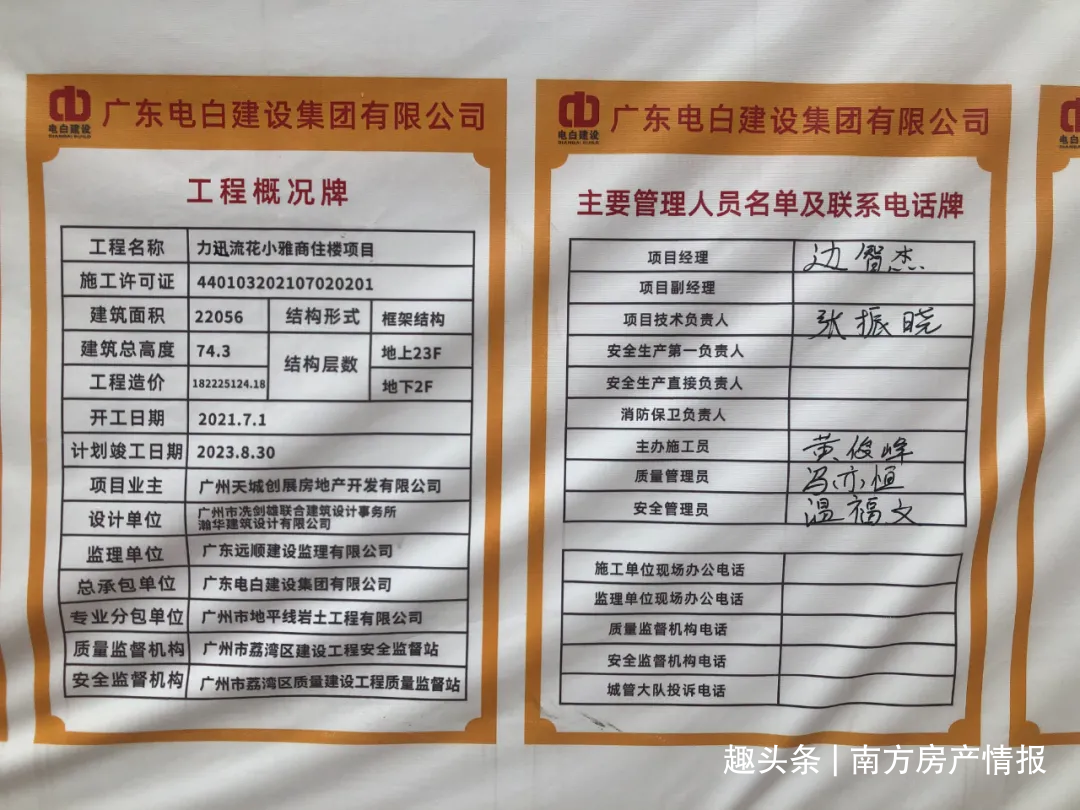 电白建设
广东电白建设集团有限公司
工程概况牌
工程名称 力迅流花小雅商住楼项目
施工许可证 440103202107020201
建筑面积 22056 结构形式 框架结构
建筑总高度 74.3 结构层数 地上23F
工程造价 182225124.18 地下2F
开工日期 2021.7.1
计划竣工日期 2023.8.30
项目业主 广州天城创展房地产开发有限公司
设计单位 广州市冼剑雄联合建筑设计事务所
瀚华建筑设计有限公司
监理单位 广东远顺建设监理有限公司
总承包单位 广东电白建设集团有限公司
专业分包单位 广州市地平线岩土工程有限公司
质量监督机构 广州市荔湾区建设工程安全监督站
安全监督机构 广州市荔湾区质量建设工程质量监督站
电白建设
广东电白建设集团有限公司
主要管理人员名单及联系电话牌
项目经理 边智杰
项目副经理
项目技术负责人 张振晓
安全生产第一负责人
安全生产直接负责人
消防保卫负责人
主办施工员 黄俊峰
质量管理员 冯亦恒
安全管理员 温福文
施工单位现场办公电话
监理单位现场办公电话
质量监督机构电话
安全监督机构电话
城管大队投诉电话
趣头条 | 南方房产情报